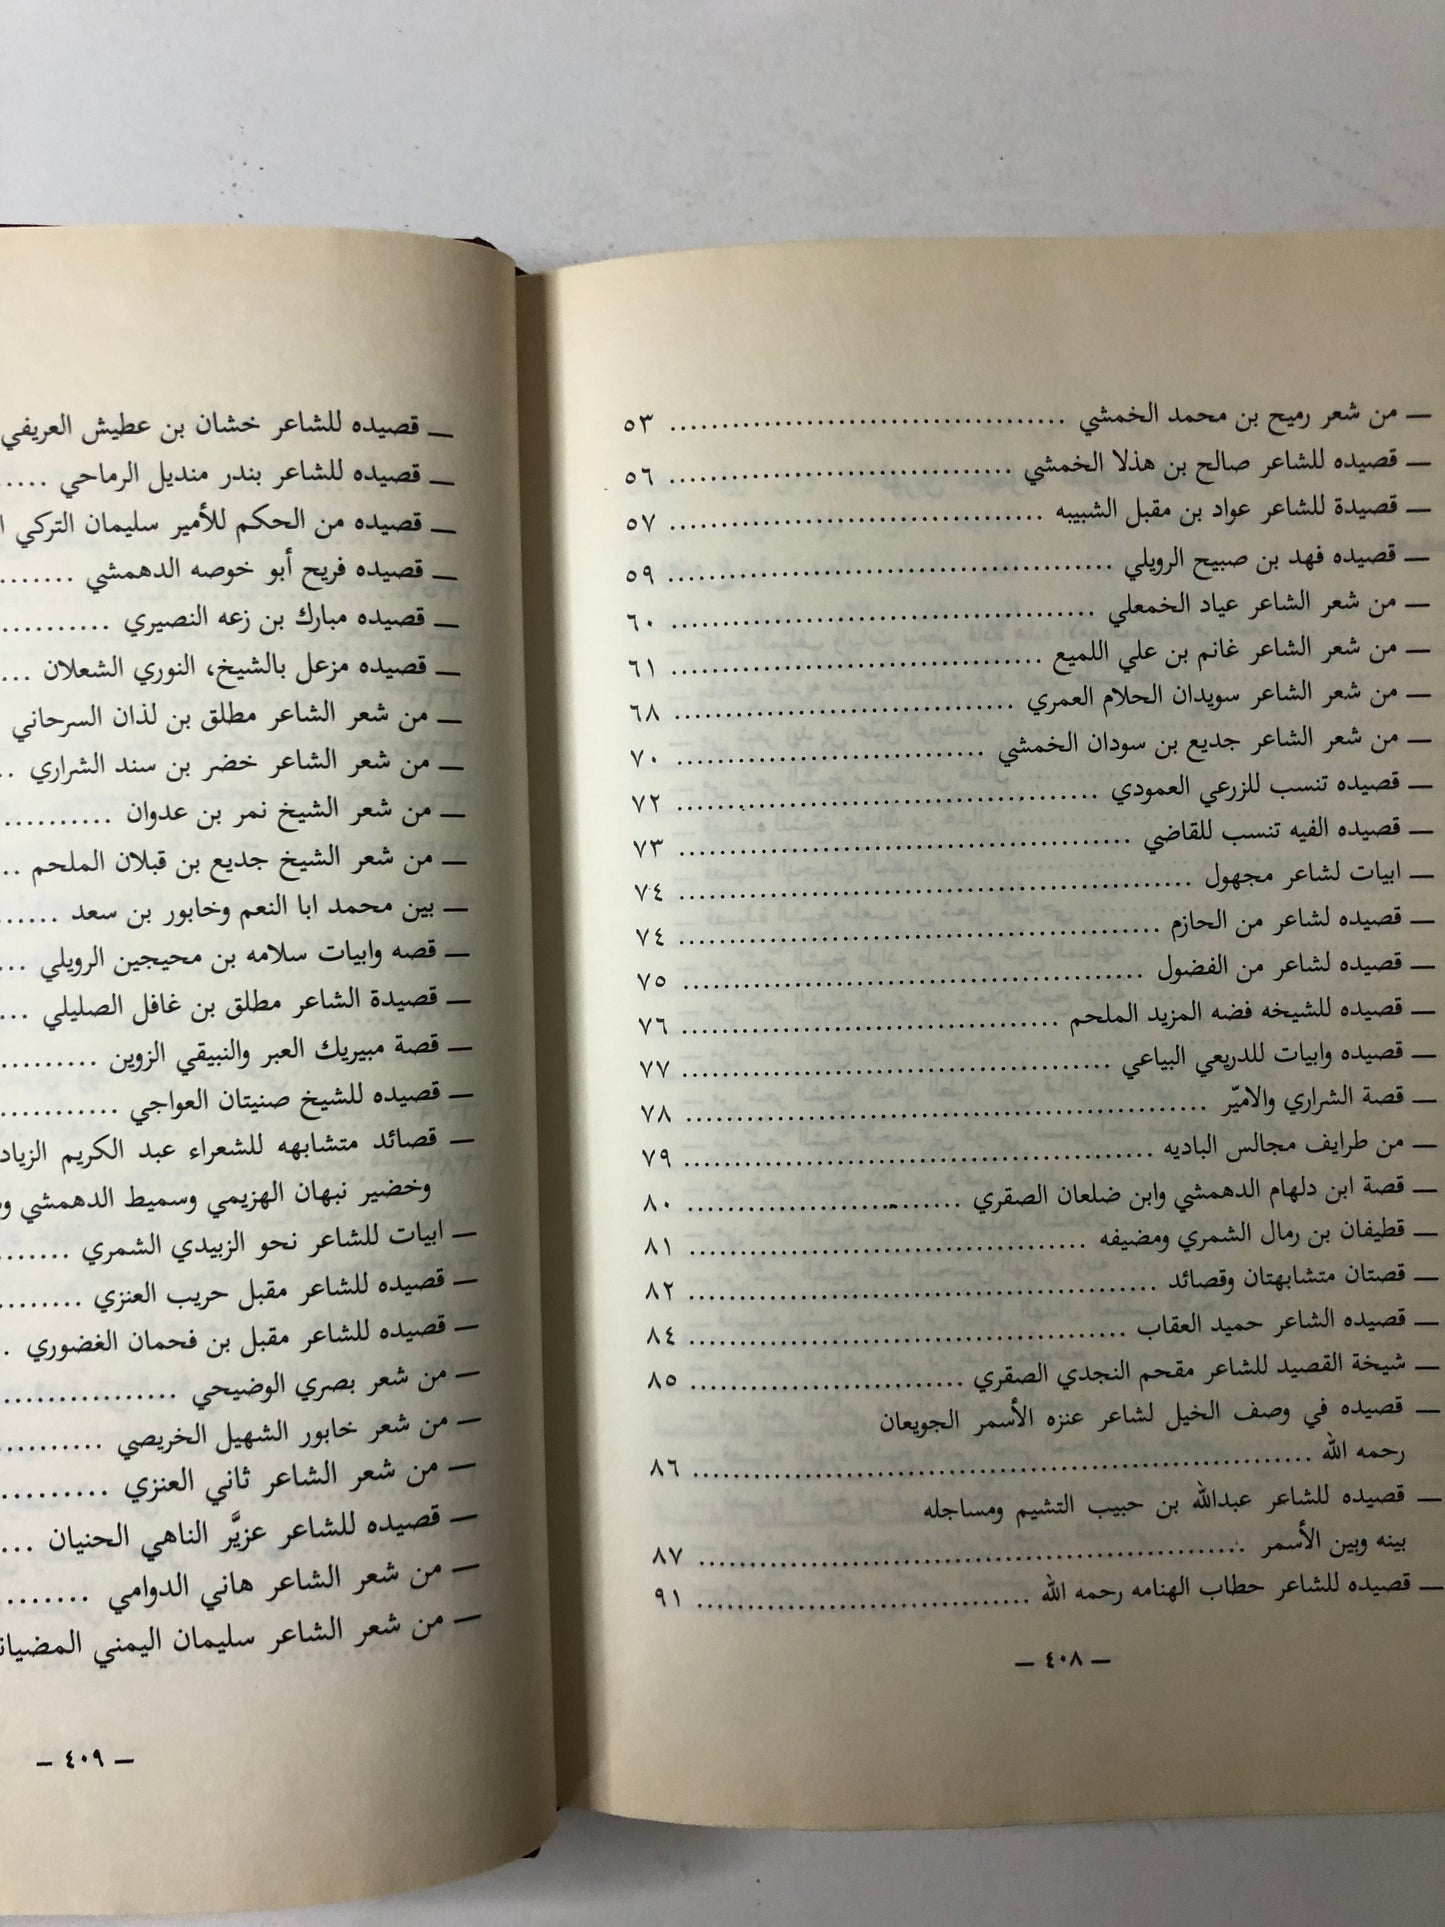 — من شعر رميح بن محمد الخمشي ................................ ٥٣
— قصيده للشاعر صالح بن هذلا الخمشي ............................ ٥٦
— قصيدة للشاعر عواد بن مقبل الشبيبه ............................. ٥٧
— قصيده فهد بن صبيح الرويلي .................................... ٥٩
— من شعر الشاعر عياد الخمعلي .................................. ٦٠
— من شعر الشاعر غانم بن علي اللميع ............................. ٦١
— من شعر الشاعر سويدان الحلام العمري ........................... ٦٨
— من شعر الشاعر جديع بن سودان الخمشي ......................... ٧٠
— قصيده تنسب للزرعي العمودي .................................. ٧٢
— قصيده الفيه تنسب للقاضي ..................................... ٧٣
— ابيات لشاعر مجهول .......................................... ٧٤
— قصيده لشاعر من الحازم ....................................... ٧٤
— قصيده لشاعر من الفضول ...................................... ٧٥
— قصيده للشيخه فضه المزيد الملحم ............................... ٧٦
— قصيده وابيات للدريعي البياعي .................................. ٧٧
— قصة الشراري والاميّر .......................................... ٧٨
— من طرايف مجالس الباديه ...................................... ٧٩
— قصة ابن دلهام الدهمشي وابن ضلعان الصقري ...................... ٨٠
— قطيفان بن رمال الشمري ومضيفه ................................ ٨١
— قصتان متشابهتان وقصائد ...................................... ٨٢
— قصيده الشاعر حميد العقاب .................................... ٨٤
— شيخة القصيد للشاعر مقحم النجدي الصقري ....................... ٨٥
— قصيده في وصف الخيل لشاعر عنزه الأسمر الجويعان
رحمه الله ...................................................... ٨٦
— قصيده للشاعر عبدالله بن حبيب التشيم ومساجله
بينه وبين الأسمر ................................................ ٨٧
— قصيده للشاعر حطاب الهنامه رحمه الله ........................... ٩١
— ٤٠٨ —
— قصيده للشاعر خشان بن عطيش العريفي
— قصيده للشاعر بندر منديل الرماحي .....
— قصيده من الحكم للأمير سليمان التركي
— قصيده فريح أبو خوصه الدهمشي .......
— قصيده مبارك بن زعه النصيري ..........
— قصيده مزعل بالشيخ، النوري الشعلان ...
— من شعر الشاعر مطلق بن لذان السرحاني
— من شعر الشاعر خضر بن سند الشراري ..
— من شعر الشيخ نمر بن عدوان ...........
— من شعر الشيخ جديع بن قبلان الملحم ..
— بين محمد ابا النعم وخابور بن سعد ......
— قصه وابيات سلامه بن محيجين الرويلي ...
— قصيدة الشاعر مطلق بن غافل الصليلي ...
— قصة مبيريك العبر والنبيقي الزوين ..........
— قصيده للشيخ صنيتان العواجي ............
— قصائد متشابهه للشعراء عبد الكريم
وخضير نبهان الهزيمي وسميط الدهمشي
— ابيات للشاعر نحو الزبيدي الشمري .......
— قصيده للشاعر مقبل حريب العنزي ........
— قصيده للشاعر مقبل بن فحمان الغضوري .
— من شعر بصري الوضيحي ................
— من شعر خابور الشهيل الخريصي ..........
— من شعر الشاعر ثاني العنزي ..........
— قصيده للشاعر عزيَّر الناهي الحنيان ...
— من شعر الشاعر هاني الدوامي ........
— من شعر الشاعر سليمان اليمني
— ٤٠٩ —